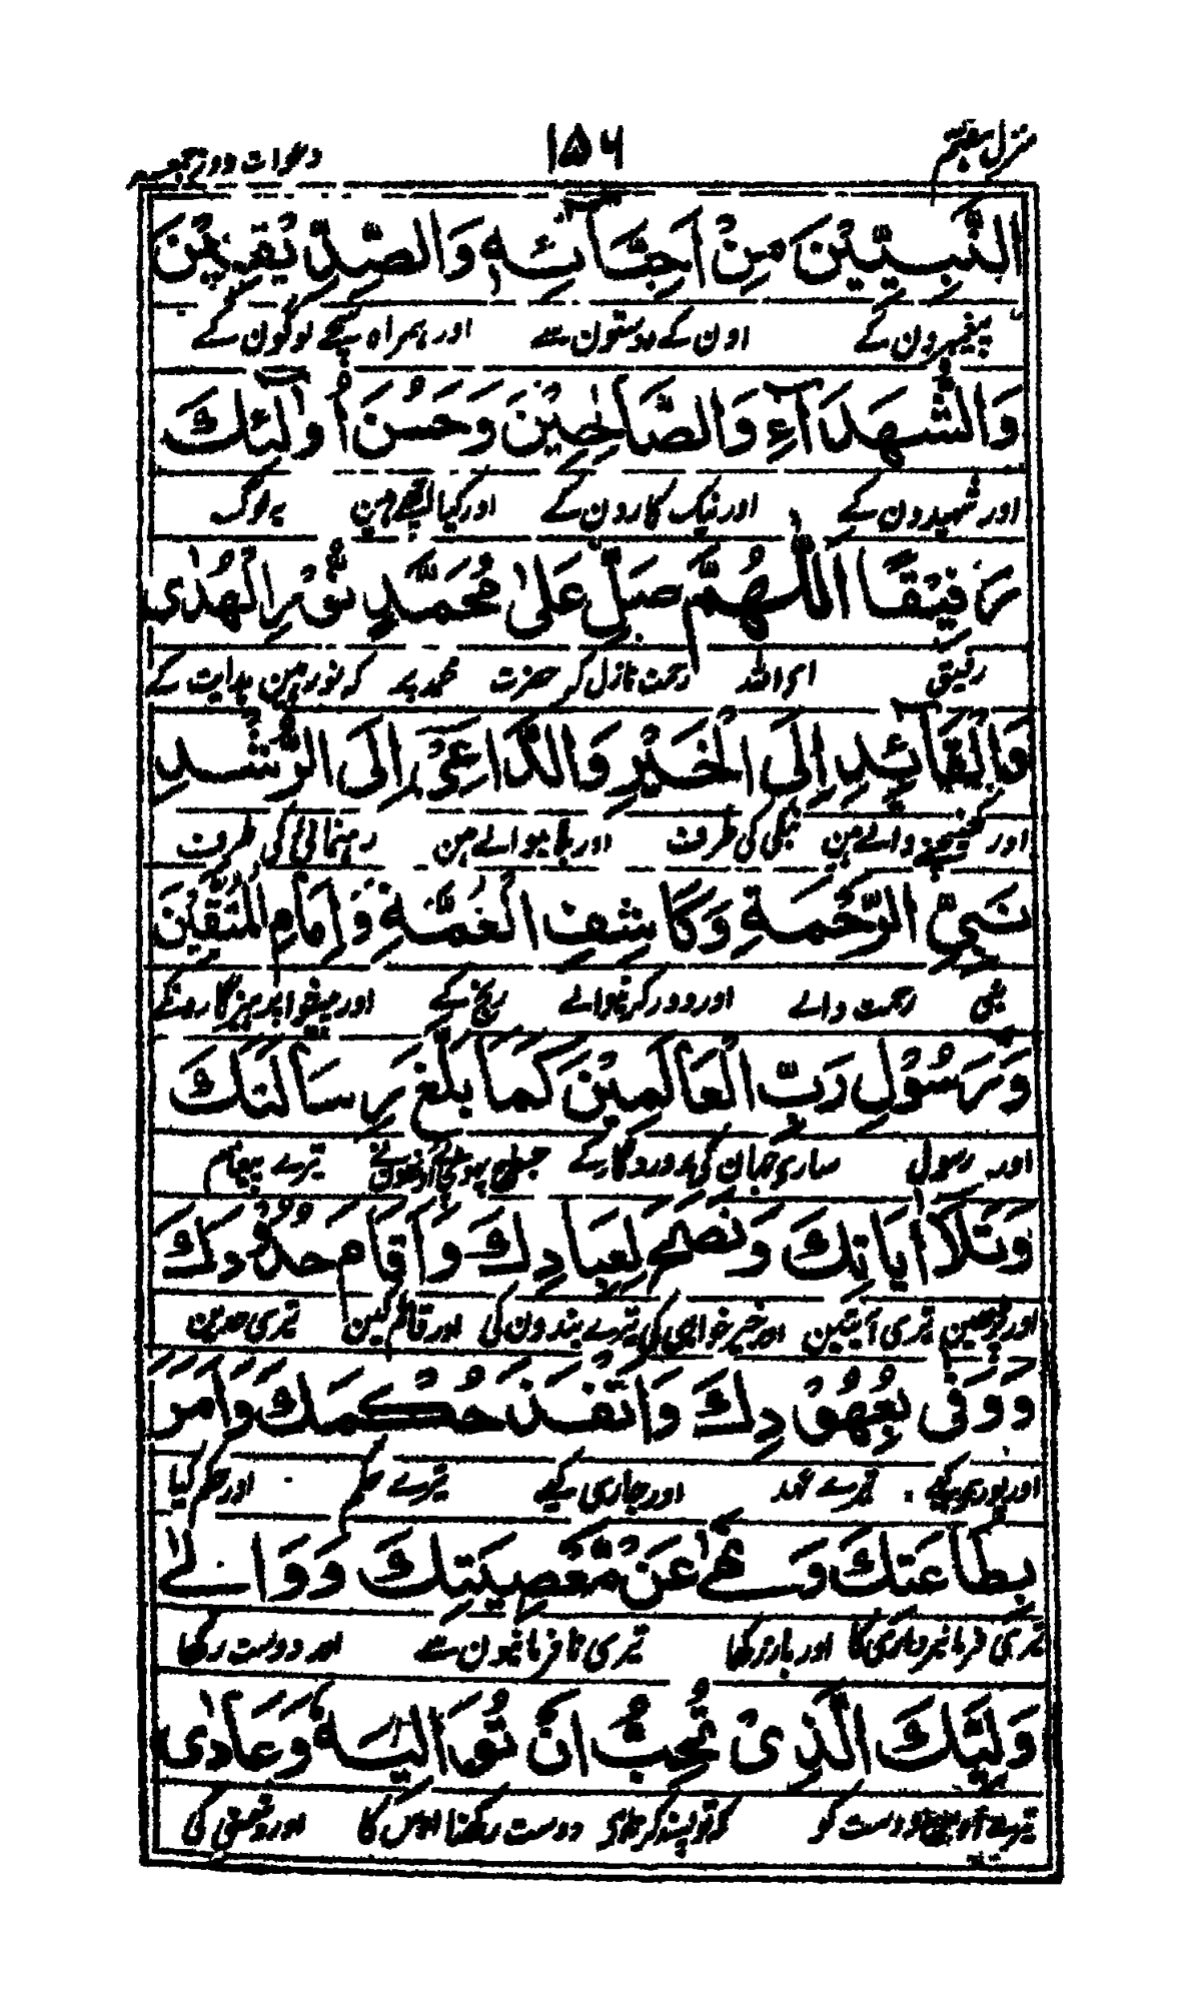 منزل ہفتم ۱۵۶ دعوات روز جمعہ
النَّبِيِّيْنَ مِنْ اَحِبَّآئِهٖ وَالصِّدِّيْقِيْنَ
پیغمبرون کے اون کے دوستون سے اور ہمراہ سچے لوگون کے
وَالشُّهَدَآءِ وَالصَّالِحِيْنَ وَحَسُنَ اُولٰٓئِكَ
اور شہیدون کے اور نیک کارون کے اور کیا اچھے ہین یہ لوگ
رَفِيْقًا اَللّٰهُمَّ صَلِّ عَلٰى مُحَمَّدٍ نُوْرِ الْهُدٰى
رفیق ای اللہ رحمت نازل کر حضرت محمد پر کہ نور ہین ہدایت کے
وَالْقَآئِدِ اِلَى الْخَيْرِ وَالدَّاعِيْ اِلَى الرُّشْدِ
اور کھینچنے والے ہین نیکی کی طرف اور بلانیوالے ہین رہنمائی کی طرف
نَبِيِّ الرَّحْمَةِ وَكَاشِفِ الْغُمَّةِ وَاِمَامِ الْمُتَّقِيْنَ
نبی رحمت والے اور دور کرنیوالے رنج کے اور پیشوا پرہیزگارونکے
وَرَسُوْلِ رَبِّ الْعَالَمِيْنَ كَمَا بَلَّغَ رِسَالَتَكَ
اور رسول ساری جہان کی پروردگار کے جسطرح پہونچائے اونھون نے تیرے پیغام
وَتَلَا اٰيَاتِكَ وَنَصَحَ لِعِبَادِكَ وَاَقَامَ حُدُوْدَكَ
اور پڑھین تیری آیتین اور خیر خواہی کی تیرے بندون کی اور قائم کین تیری حدین
وَوَفٰى بِعُهُوْدِكَ وَاَنْفَذَ حُكْمَكَ وَاَمَرَ
اور پورے کیے تیرے عہد اور جاری کیے تیرے حکم اور حکم کیا
بِطَاعَتِكَ وَنَهٰى عَنْ مَعْصِيَتِكَ وَوَالٰى
تیری فرمانبرداری کا اور باز رکھا تیری نافرمانیون سے اور دوست رکھا
وَلِيَّكَ الَّذِىْ تُحِبُّ اَنْ تُوَالِيَهٗ وَعَادٰى
تیرے دوست کو کہ تو پسند کرتا ہی دوست رکھنا اوس کا اور دشمنی کی